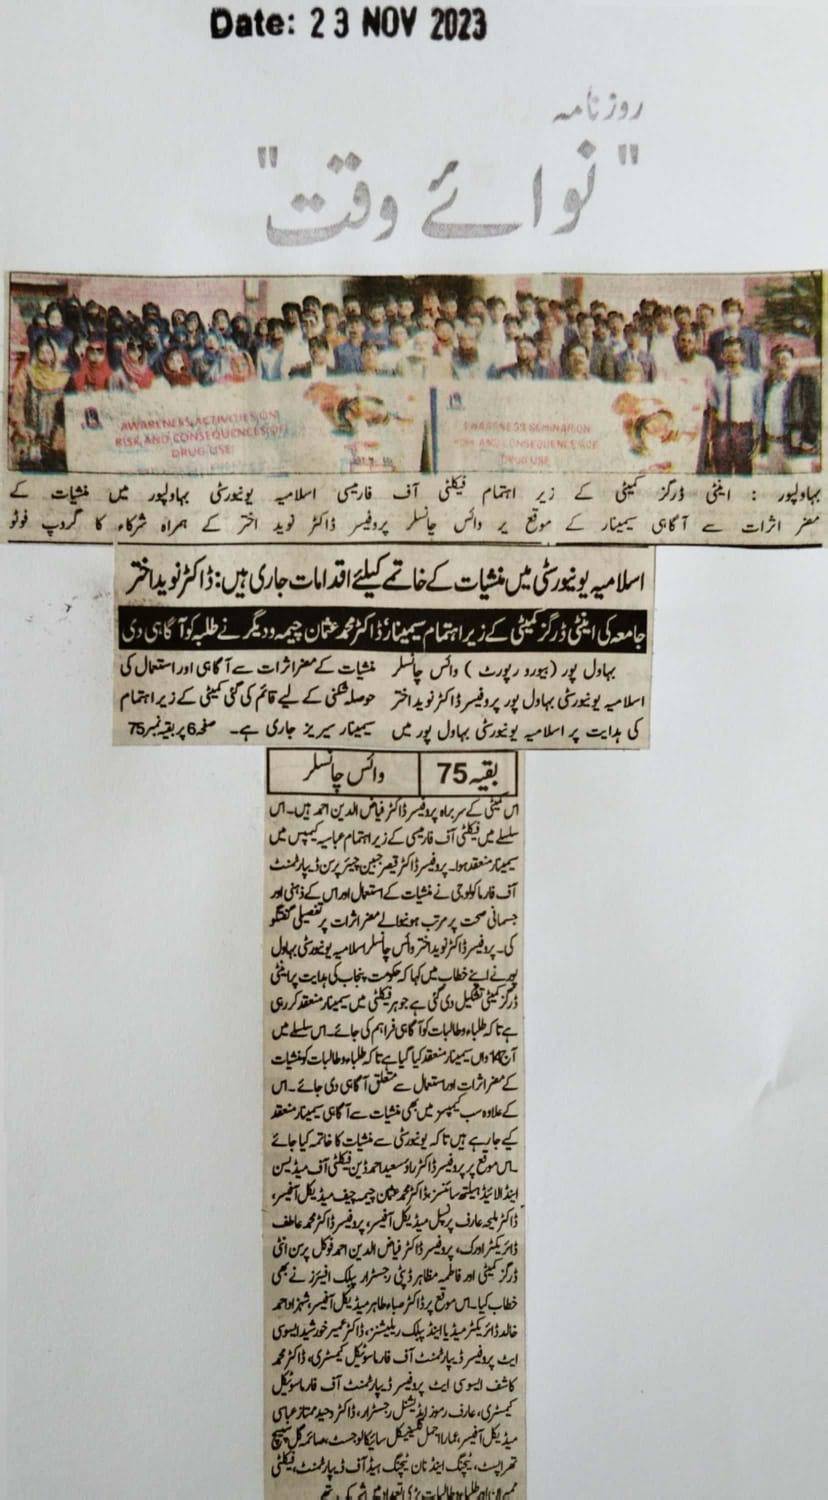 Date: 23 NOV 2023
روزنامہ
"نوائے وقت"
AWARENESS ACTIVITIES ON
RISK AND CONSEQUENCES OF
DRUG USE
AWARENESS SEMINAR ON
RISK AND CONSEQUENCES OF
DRUG USE
بہاولپور : اینٹی ڈرگز کمیٹی کے زیر اہتمام فیکلٹی آف فارمیسی اسلامیہ یونیورسٹی بہاولپور میں منشیات کے
مضر اثرات سے آگاہی سیمینار کے موقع پر وائس چانسلر پروفیسر ڈاکٹر نوید اختر کے ہمراہ شرکاء کا گروپ فوٹو
اسلامیہ یونیورسٹی میں منشیات کے خاتمے کیلئے اقدامات جاری ہیں: ڈاکٹر نوید اختر
جامعہ کی اینٹی ڈرگز کمیٹی کے زیر اہتمام سیمینار، ڈاکٹر محمد عثمان چیمہ و دیگر نے طلبہ کو آگاہی دی
بہاول پور (بیورو رپورٹ) وائس چانسلر
اسلامیہ یونیورسٹی بہاول پور پروفیسر ڈاکٹر نوید اختر
کی ہدایت پر اسلامیہ یونیورسٹی بہاول پور میں
منشیات کے مضر اثرات سے آگاہی اور استعمال کی
حوصلہ شکنی کے لیے قائم کی گئی کمیٹی کے زیر اہتمام
سیمینار سیریز جاری ہے۔ صفحہ 6 پر بقیہ نمبر 75
بقیہ 75 وائس چانسلر
اس کمیٹی کے سربراہ پروفیسر ڈاکٹر فیاض الدین احمد ہیں۔ اس
سلسلے میں فیکلٹی آف فارمیسی کے زیر اہتمام عباسیہ کیمپس میں
سیمینار منعقد ہوا۔ پروفیسر ڈاکٹر قیصر جبین چیئر پرسن ڈیپارٹمنٹ
آف فارماکولوجی نے منشیات کے استعمال اور اس کے ذہنی اور
جسمانی صحت پر مرتب ہونیوالے مضر اثرات پر تفصیلی گفتگو
کی۔ پروفیسر ڈاکٹر نوید اختر وائس چانسلر اسلامیہ یونیورسٹی بہاول
پور نے اپنے خطاب میں کہا کہ حکومت پنجاب کی ہدایت پر اینٹی
ڈرگز کمیٹی تشکیل دی گئی ہے جو ہر فیکلٹی میں سیمینار منعقد کر رہی
ہے تاکہ طلباء و طالبات کو آگاہی فراہم کی جائے۔ اس سلسلے میں
آج 14 واں سیمینار منعقد کیا گیا ہے تاکہ طلباء و طالبات کو منشیات
کے مضر اثرات اور استعمال سے متعلق آگاہی دی جائے۔ اس
کے علاوہ سب کیمپسز میں بھی منشیات سے آگاہی سیمینار منعقد
کیے جا رہے ہیں تاکہ یونیورسٹی سے منشیات کا خاتمہ کیا جائے
۔ اس موقع پر پروفیسر ڈاکٹر راؤ سعید احمد ڈین فیکلٹی آف میڈیسن
اینڈ الائیڈ ہیلتھ سائنسز، ڈاکٹر محمد عثمان چیمہ چیف میڈیکل آفیسر،
ڈاکٹر ملیحہ عارف پرنسپل میڈیکل آفیسر، پروفیسر ڈاکٹر محمد عاطف
ڈائریکٹر اورک، پروفیسر ڈاکٹر فیاض الدین احمد فوکل پرسن انٹی
ڈرگز کمیٹی اور فاطمہ مظاہر ڈپٹی رجسٹرار پبلک افیئرز نے بھی
خطاب کیا۔ اس موقع پر ڈاکٹر صباء طاہر میڈیکل آفیسر، شہزاد احمد
خالد ڈائریکٹر میڈیا اینڈ پبلک ریلیشنز، ڈاکٹر عمیر خورشید ایسوسی
ایٹ پروفیسر ڈیپارٹمنٹ آف فارماسوٹیکل کیمسٹری، ڈاکٹر محمد
کاشف ایسوسی ایٹ پروفیسر ڈیپارٹمنٹ آف فارماسوٹیکل
کیمسٹری، عارف رموز ایڈیشنل رجسٹرار، ڈاکٹر وحید ممتاز عباسی
میڈیکل آفیسر، عمارا اجمل کلینیکل سائیکالوجسٹ، صائمہ گل سپیچ
تھراپسٹ، ٹیچنگ اینڈ نان ٹیچنگ ہیڈ آف ڈیپارٹمنٹ، فیکلٹی
ممبران اور طلباء و طالبات بڑی تعداد میں شریک تھے